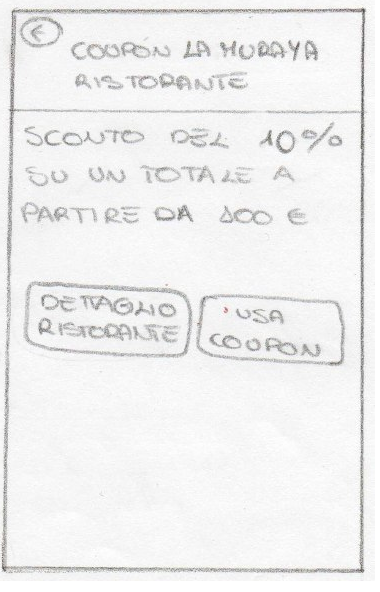 COUPON LA MURAYA
RISTORANTE
SCONTO DEL 10%
SU UN TOTALE A
PARTIRE DA 100 €
DETTAGLIO
RISTORANTE
USA
COUPON